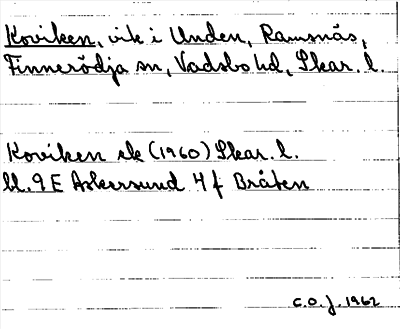 Koviken, vik i Unden, Ramsnäs,
Finnerödja sn, Vadsbo hd, Skar. l.
Koviken ek (1960) Skar. l.
bl. 9 E Askersund 4 f Bråten
C.O.J. 1962